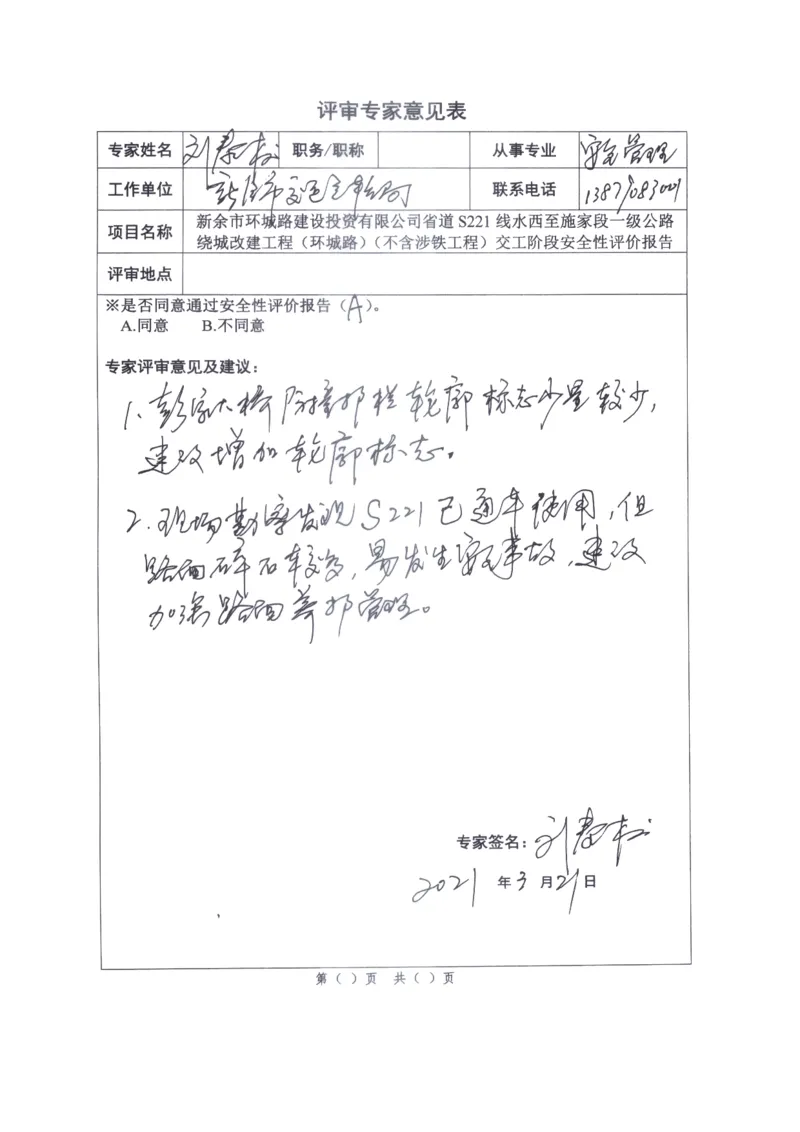 评审专家意见表
专家姓名 刘 职务/职称 从事专业 安全管理
工作单位 新余市交通运输局 联系电话
项目名称 新余市环城路建设投资有限公司省道 S221 线水西至施家段一级公路
绕城改建工程（环城路）（不含涉铁工程）交工阶段安全性评价报告
评审地点
※是否同意通过安全性评价报告（A）。
A.同意 B.不同意
专家评审意见及建议：
1、彭家大桥防撞护栏轮廓标志少量较少，
建议增加轮廓标志。
2.现场勘察发现S221已通车使用，但
路面碎石较多，易发生安全事故，建议
加强路面养护管理。
专家签名：刘
2021 年 3 月 21 日
第（ ）页 共（ ）页